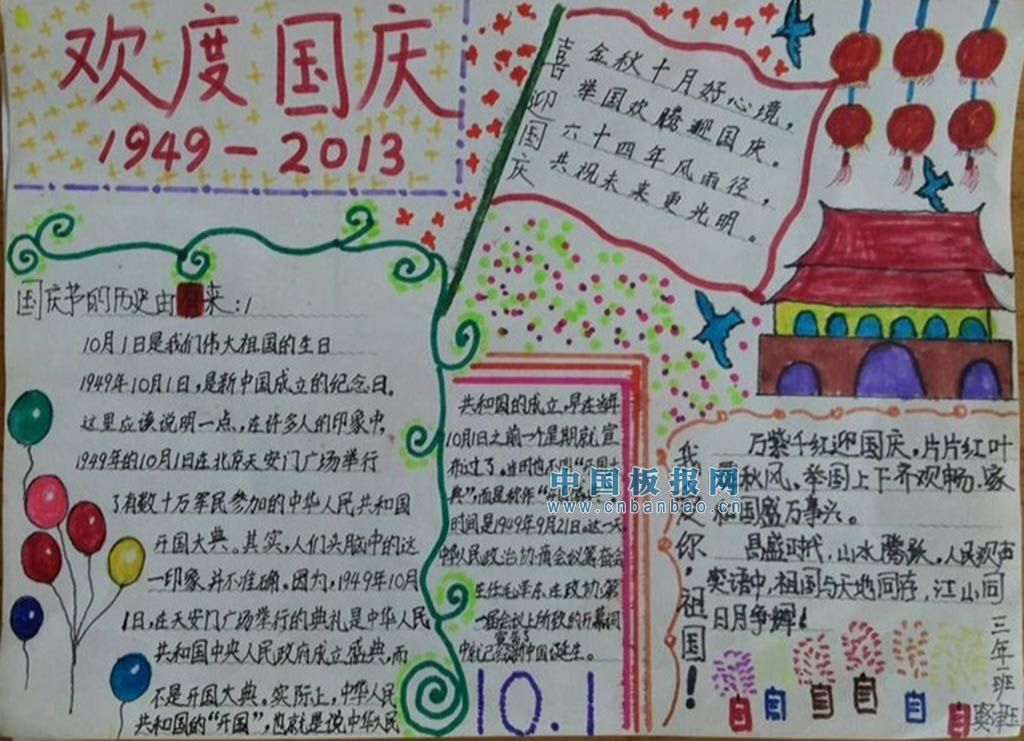 欢度国庆
1949-2013
喜迎国庆
金秋十月好心境，
举国欢腾迎国庆。
六十四年风雨径，
共祝未来更光明。
国庆节的历史由来：
10月1日是我们伟大祖国的生日
1949年10月1日，是新中国成立的纪念日。
这里应该说明一点，在许多人的印象中，
1949年的10月1日在北京天安门广场举行
了有数十万军民参加的中华人民共和国
开国大典。其实，人们头脑中的这
一印象并不准确。因为，1949年10月
1日，在天安门广场举行的典礼是中华人民
共和国中央人民政府成立盛典，而
不是开国大典。实际上，中华人民
共和国的“开国”，也就是说中华人民
共和国的成立，早在当年
10月1日之前一个星期就宣
布过了。当时也不叫“开国大
典”，而是称作“
时间是1949年9月21日。这一天
中华人民政治协商会议筹备会
主任毛泽东在政协第
一届会议上所致的开幕词
中就已宣告了新中国诞生。
10.1
我爱你，祖国！
万紫千红迎国庆，片片红叶
秋风。举国上下齐欢畅，家
和国盛万事兴。
昌盛时代，山水腾跃，人民欢声
笑语中，祖国与天地同存，江山同
日月争辉！
三年一班
中国板报网
www.cnbanbao.cn